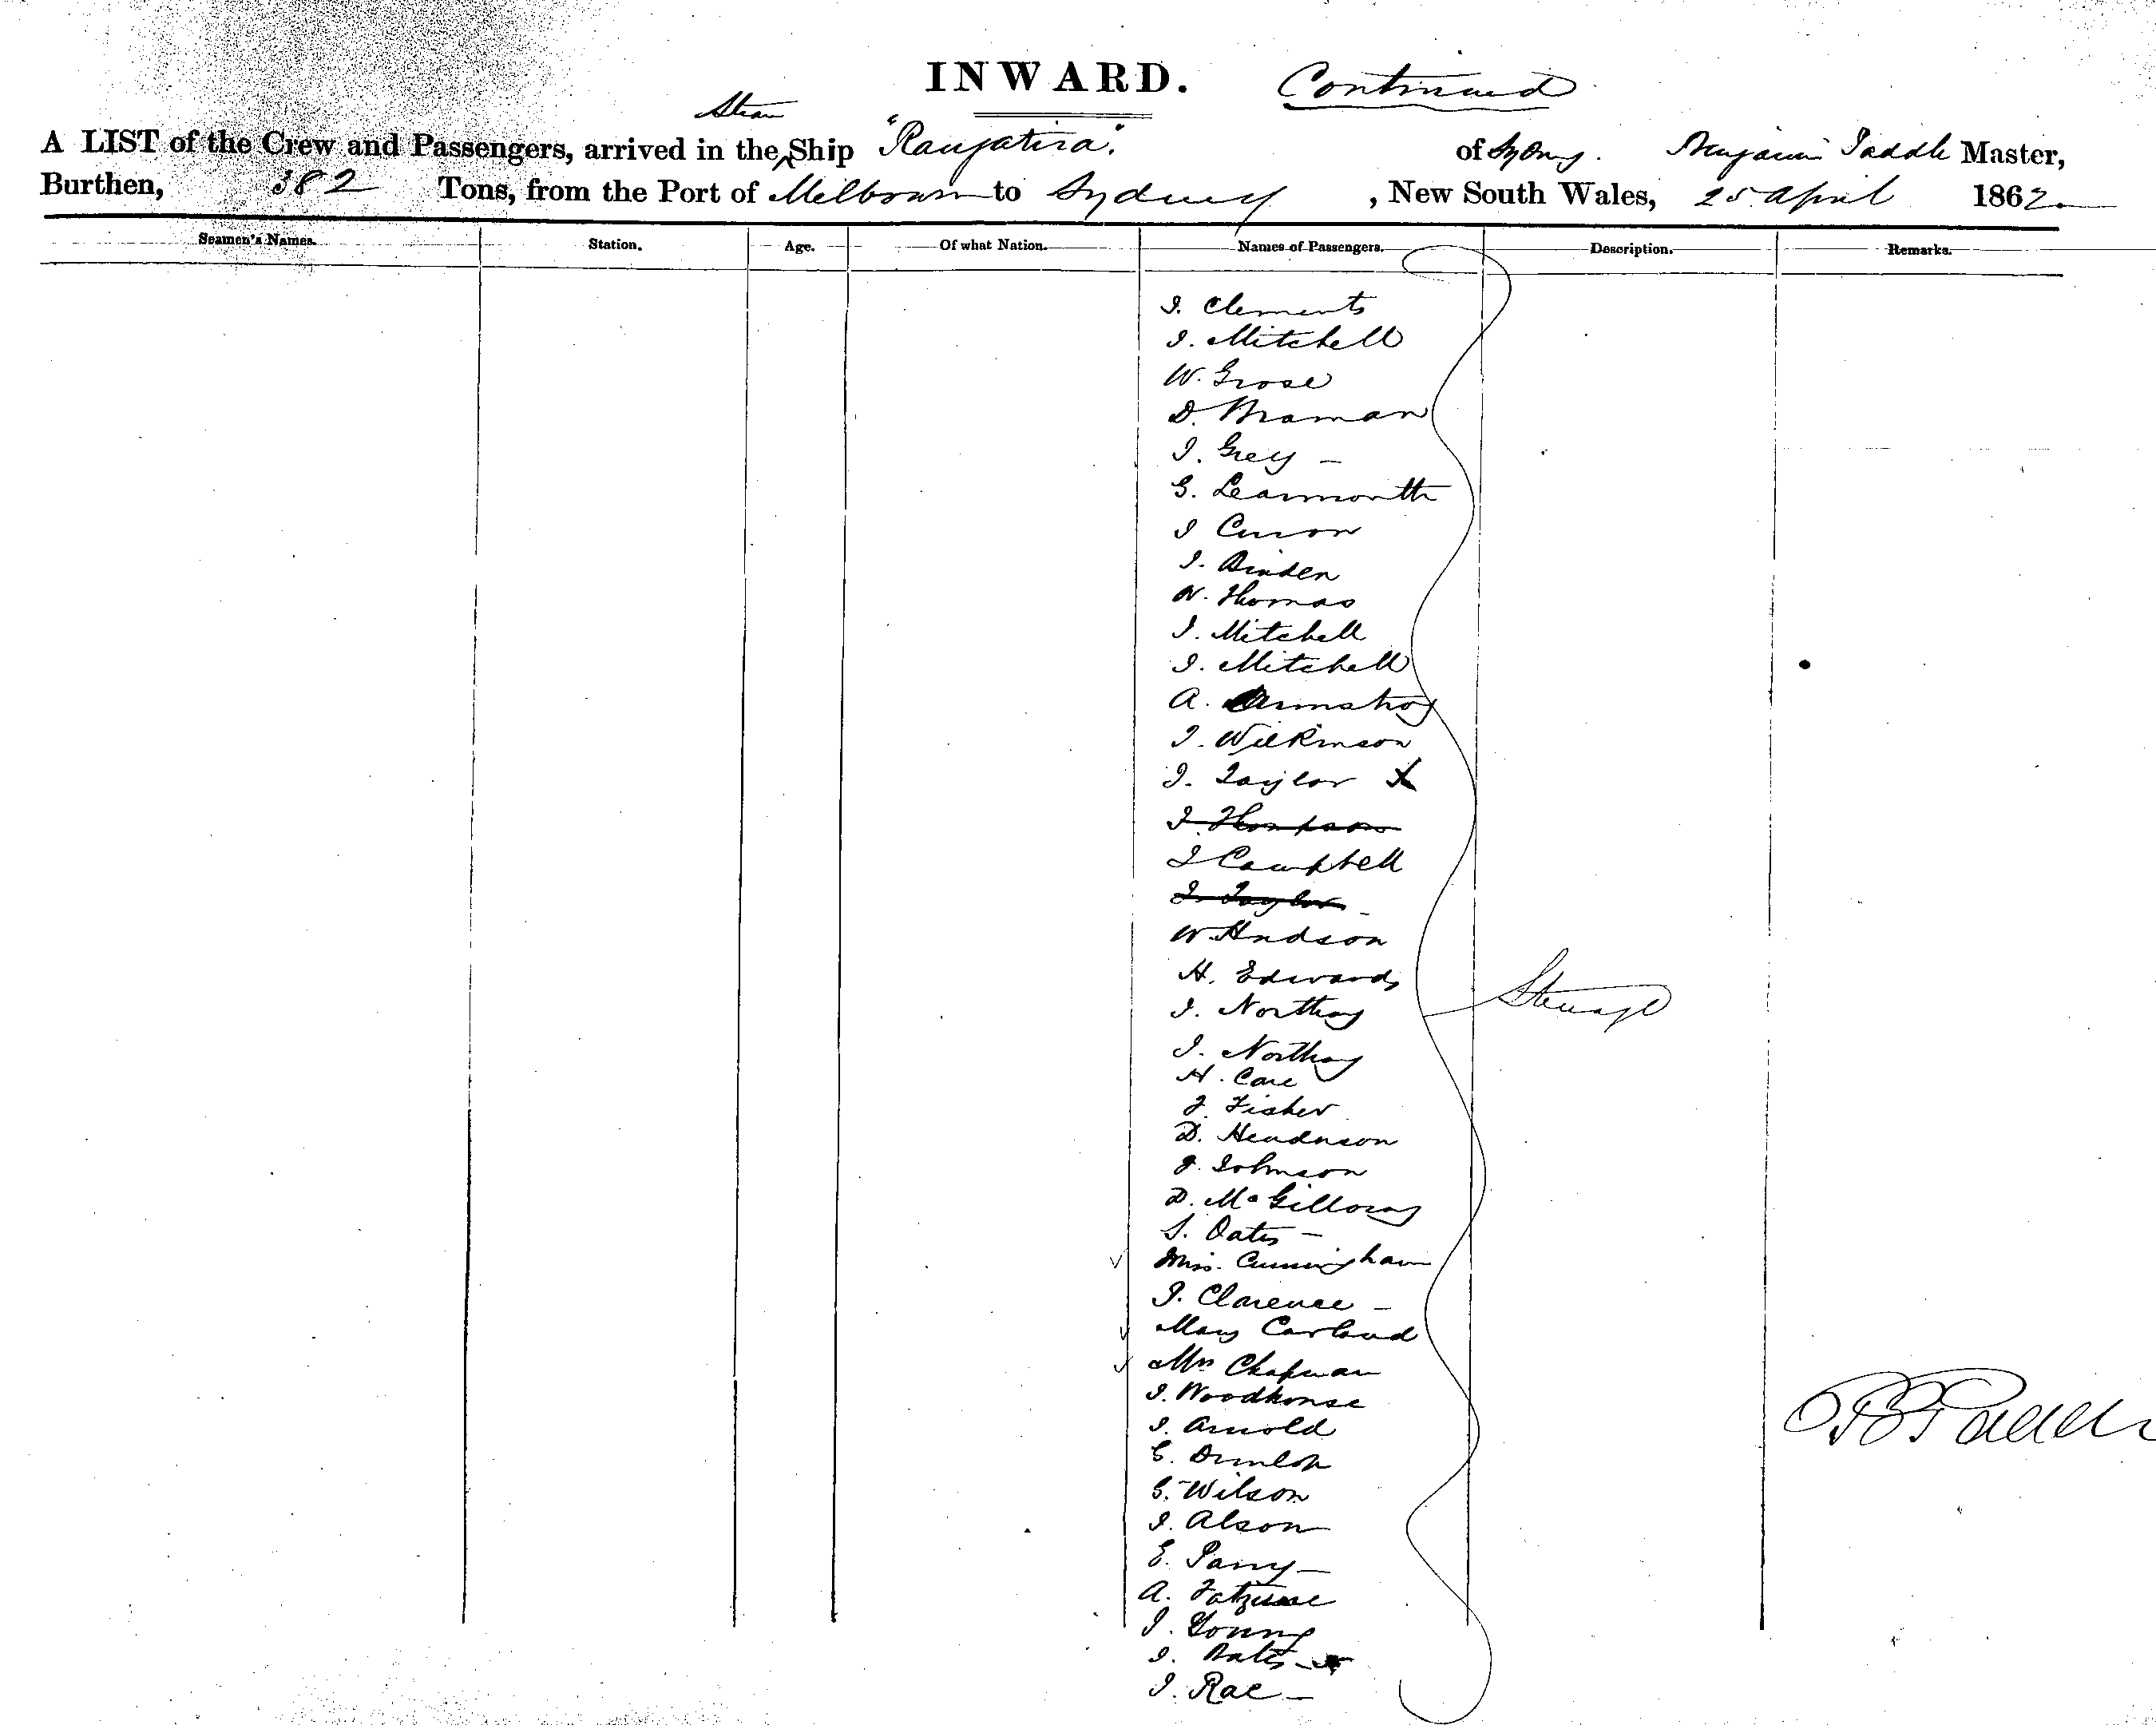 INWARD. Continued
Steam
A LIST of the Crew and Passengers, arrived in the Ship "Rangatira". of Sydney. Benjamin Paddle Master,
Burthen, 382 Tons, from the Port of Melbourne to Sydney, New South Wales, 25 April 1862.
Seamen's Names. Station. Age. Of what Nation. Names of Passengers. Description. Remarks.
I. Clements
I. Mitchell
W. Grose
D. Braman
I. Grey —
G. Learmonth
I Curron
I. Binden
W. Thomas
I. Mitchell
I. Mitchell
A. Armstrog
I. Wilkinson
I. Taylor X
I. Thompson
I Campbell
I. Taylor
W. Hudson
H. Edwards
Steerage
I. Northey
I. Northey
H. Care
J. Fisher
D. Henderson
J. Johnson
D. McGilloray
S. Oates —
Miss. Cunningham
I. Clarence —
Mary Carland
Mrs Chapman
I. Woodhouse
I. Arnold
E. Dunlop
G. Wilson
I. Alson
E. Parry —
A.
I. Young
I. Bates
I. Rae —